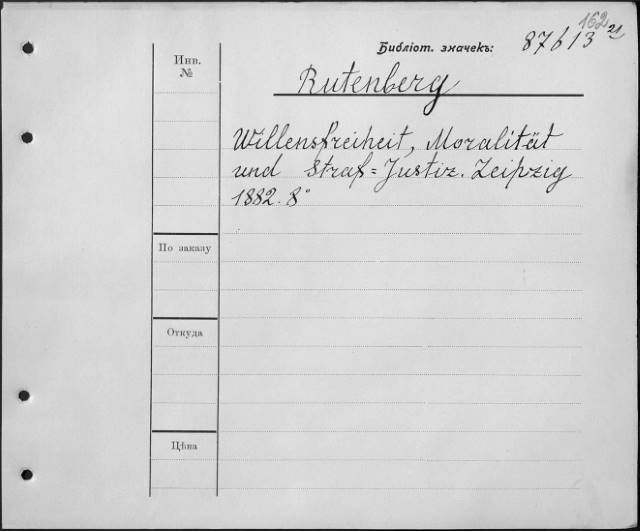 162
Библіот. значекъ: 87613 21
Инв.
№
Rutenberg
Willensfreiheit, Moralität
und Straf=Justiz. Leipzig
1882. 8°
По заказу
Откуда
Цѣна